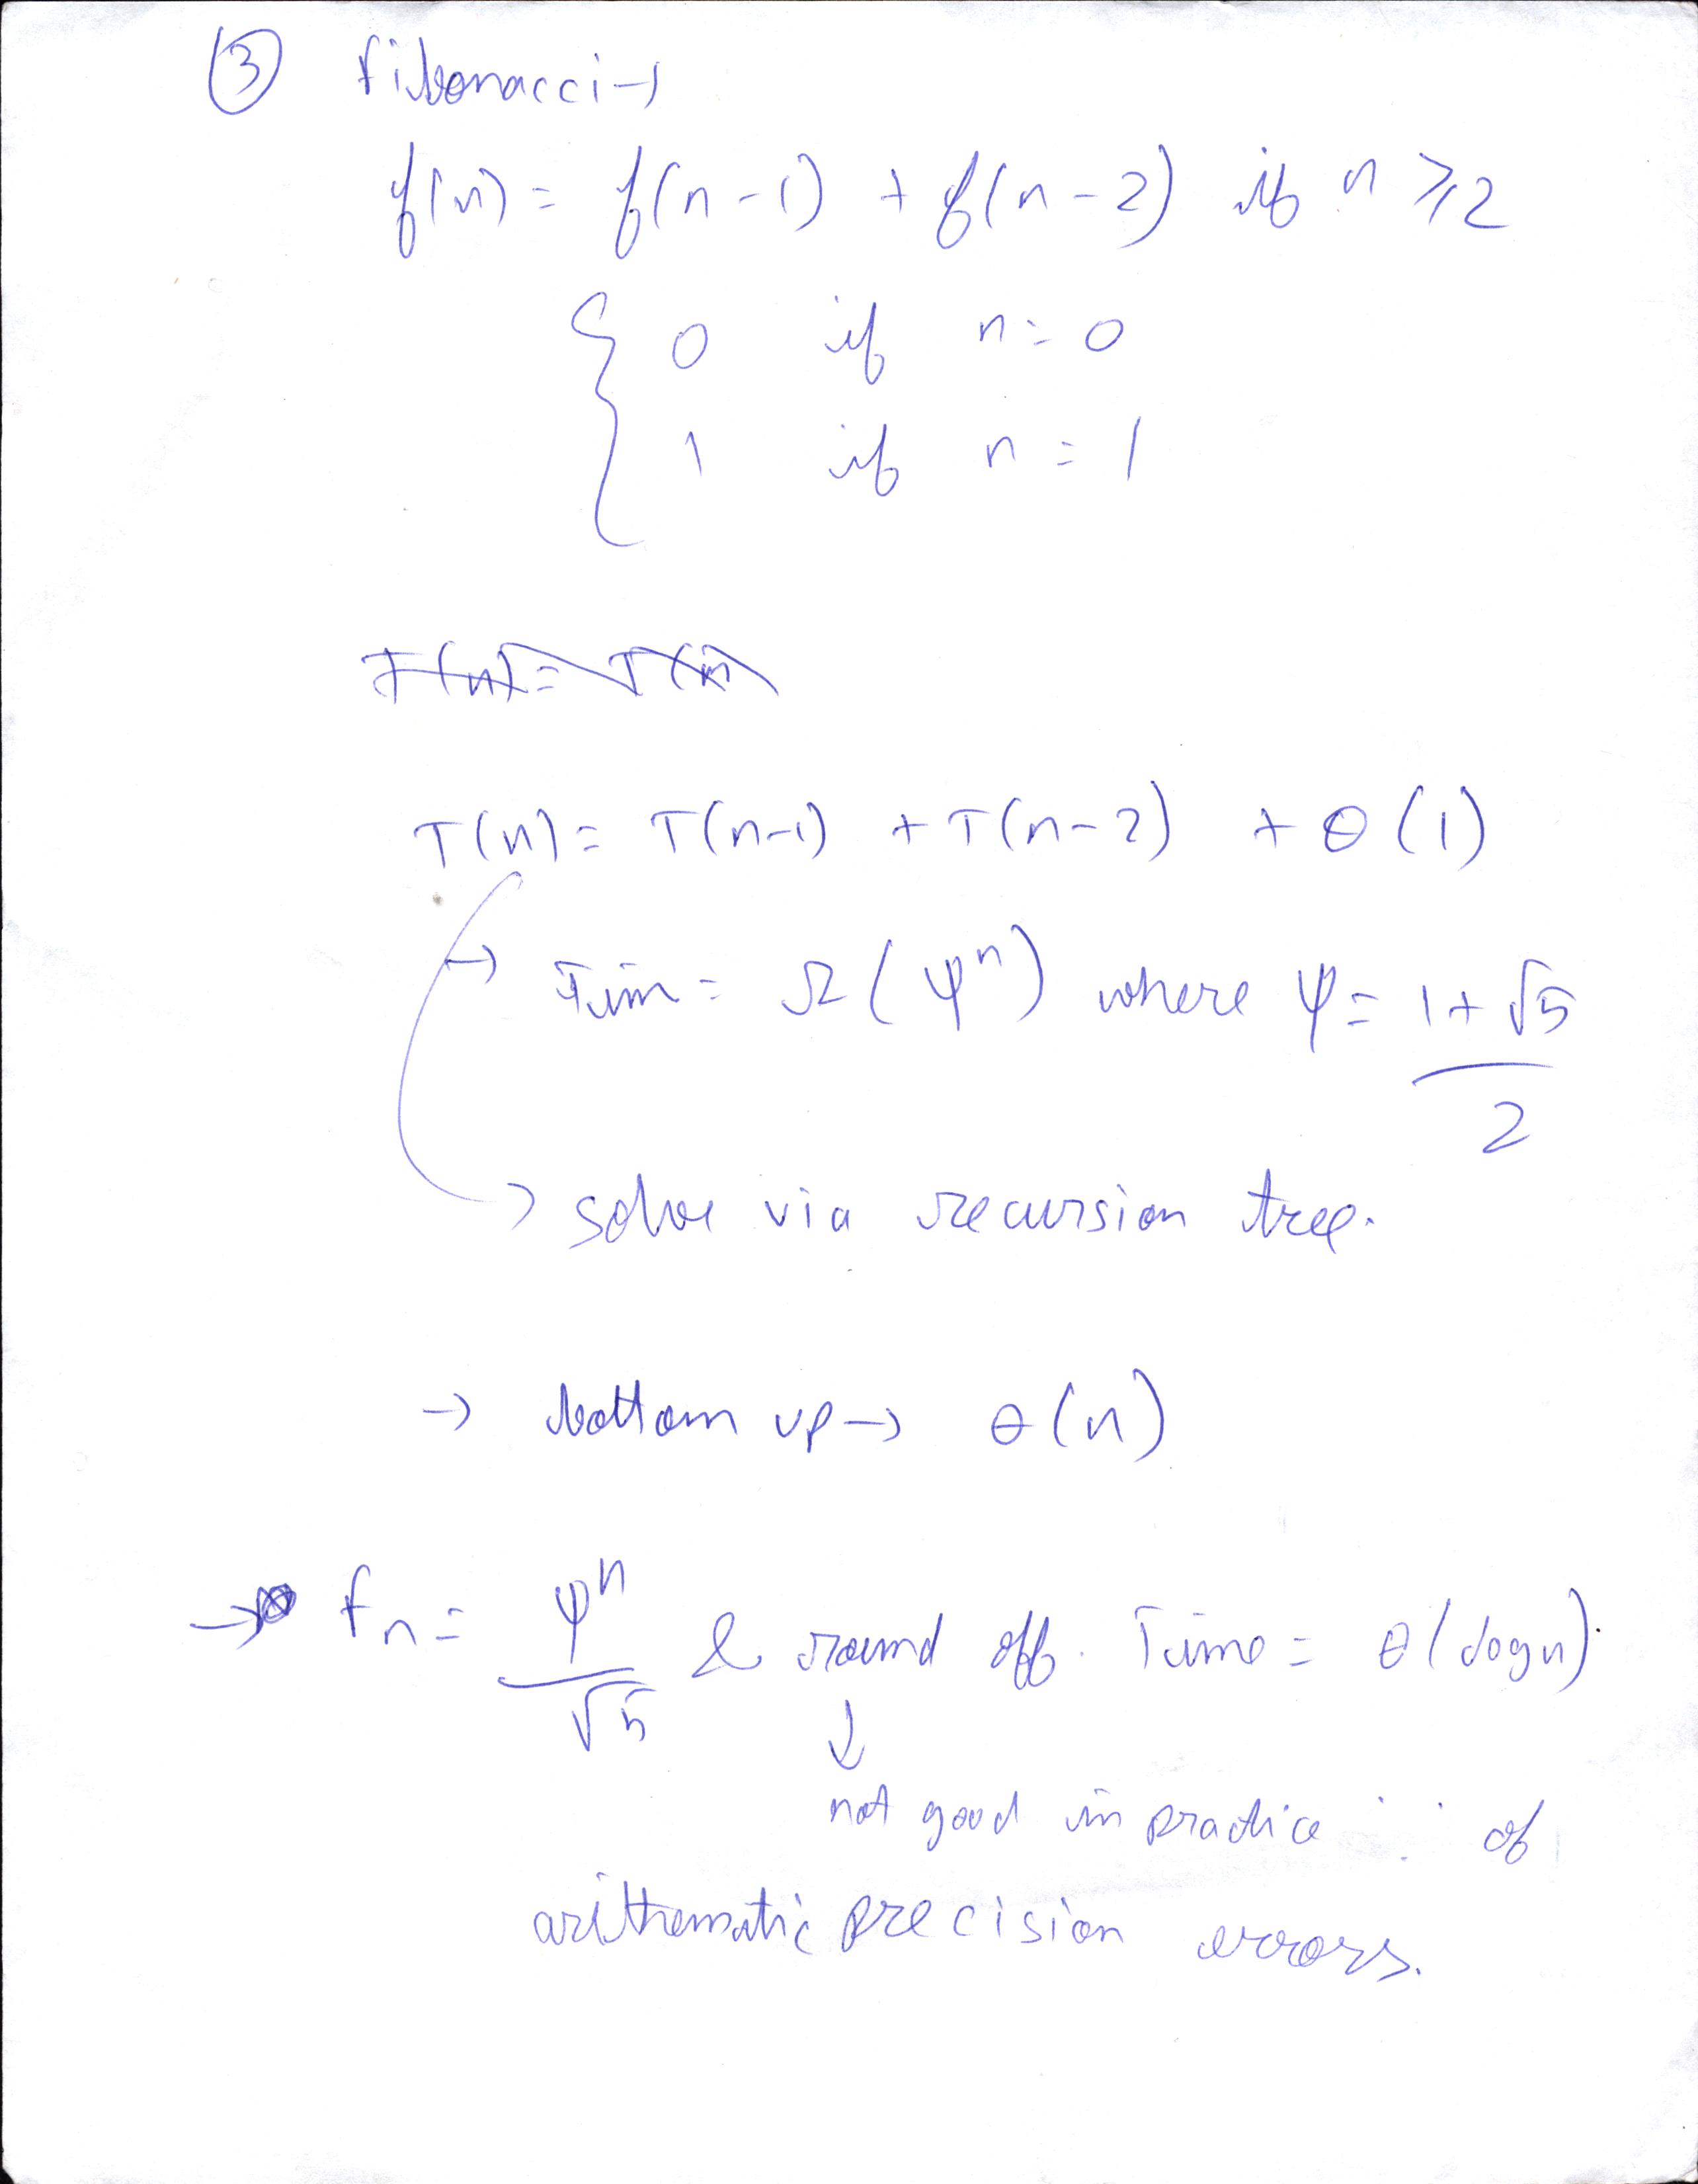 ③ fibonacci →
f(n) = f(n-1) + f(n-2) if n ≥ 2
{ 0 if n = 0
1 if n = 1
T(n) = T(n-1) + T(n-2) + θ(1)
→ Tim = Ω(φⁿ) where φ = (1+√5)/2
→ solve via recursion tree.
→ bottom up → θ(n)
→ fn = φⁿ/√5 & round off. Time = θ(logn).
↓
not good in practice ∵ of
arithematic precision errors.